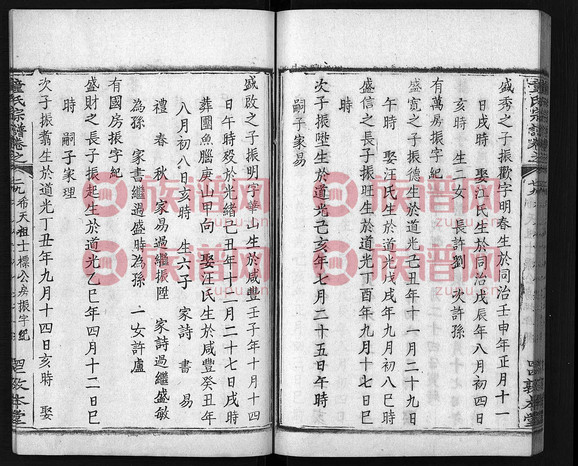 盛秀之子振歡字明春生於同治壬申年正月十一
日戌時　娶江氏生於同治戊辰年八月初四日
亥時　生二女　長許劉　次許孫
有萬房振字紀
盛寬之子振德生於道光己丑年十一月二十九日
午時　娶汪氏生於道光戊戌年九月初八巳時
盛信之長子振旺生於道光丁酉年九月十七巳日
時
次子振墮生於道光己亥年七月二十五日午時
嗣子家易
盛啟之子振明字華山生於咸豐壬子年十月十四
日午時殁於光緒己丑年十二月二十七日戌時
葬團魚腦庚山甲向　娶汪氏生於咸豐癸丑年
八月初八日亥時　生六子　家詩　書　易
禮　春　秋　家易過繼振陞　家詩過繼盛敏
為孫　家書繼過盛時為孫　一女許盧
有國房振字紀
盛財之長子振起生於道光乙巳年四月十二日巳
時　嗣子家理
次子振翥生於道光丁丑年九月十四日亥時　娶
童氏宗譜卷之　十九　希天祖士標公房振字紀　聖教本堂
族谱网
zupu.cn